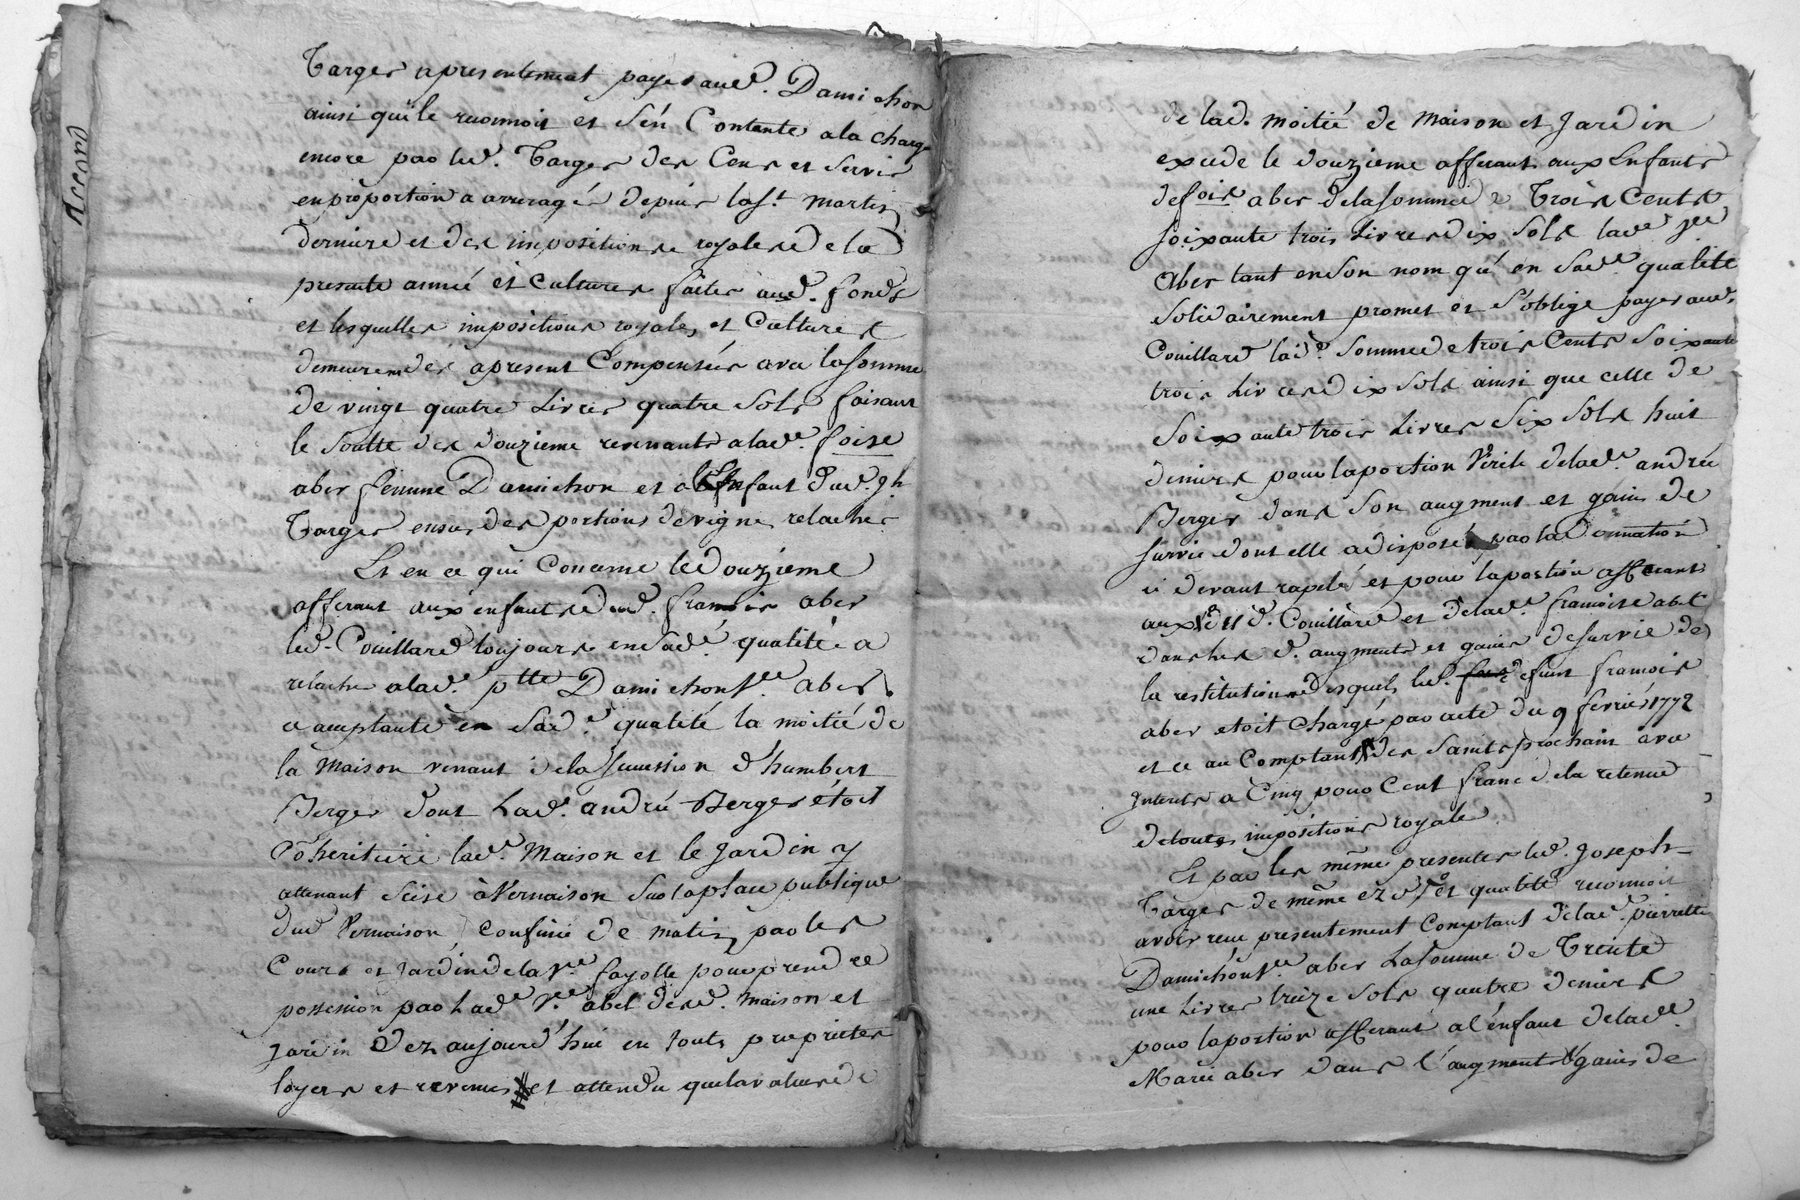 Accord
Targes apresentement payes aud. Damichon
ainsi quil le reconnoit et s'en Contente a la charge
encore par led. Targes des Cens et servis
en proportion a arreragés depuis la st. martin
derniere et des impositions royales de la
presente année et Cultures faites aud. fonds
et lesquelles impositions royales et Cultures
demeurent dés apresent Compensées avec la somme
de vingt quatre Livres quatre sols faisant
le soulte des douzieme revenants a lad. foise
aber femme Damichon et a l'enfant dud. jh.
Targes ensus des portions de vigne relachée
Et en ce qui Concerne le douzieme
afferant aux enfants dud. francois aber
led. Couillard toujours en sad. qualité a
relaché a lad. ptte Damichon ve. aber
acceptante en sad. qualité la moitié de
la maison venant de la succession d'humbert
Berger dont Lad. andrée Berger étoit
Cohéritiere lad. Maison et le jardin y
attenant scise à Vernaison sur la place publique
dud Vernaison Confinée de matin par les
Cours et jardin de la Ve. fayolle pour prendre
possession par Lad. Ve. abel desd. maison et
jardin dez aujourd'hui en touts proprietes
loyers et revenus et attendu que la valeur de
de lad. moitié de maison et jardin
excede le douzieme afferant aux Enfants
de fois aber de la somme de Trois Cents
soixante trois Livres dix sols lad. ve
aber tant en son nom qu'en sad. qualité
solidairement promet et s'oblige payer aud.
Couillard lad. somme de trois Cents soixante
trois Livres dix sols ainsi que celle de
soixante trois Livres six sols huit
deniers pour la portion Virile de lad. andrée
Berger dans son augment et gains de
survie dont elle a disposé par la donnation
ci devant rapelée et pour la portion afferant
aux d. Couillard et de lad. francoise abel
dans les d. augments et gains de survie de
la restitution desquels led. defunt francois
aber etoit Chargé par acte du 9 fevrier 1772
et ce au Comptant des saints prochain avec
Interets a Cinq pour Cent franc de la retenue
de toutes impositions royale
Et par les même presentes led. Joseph
Targes de même ezd. et qualité reconnoit
avoir recu presentement Comptant de lad. pierrette
Damichon ve. aber La somme de Trente
une Livres treize sols quatre deniers
pour la portion afferant a l'enfant de lad.
Marie aber dans l'augment et gains de